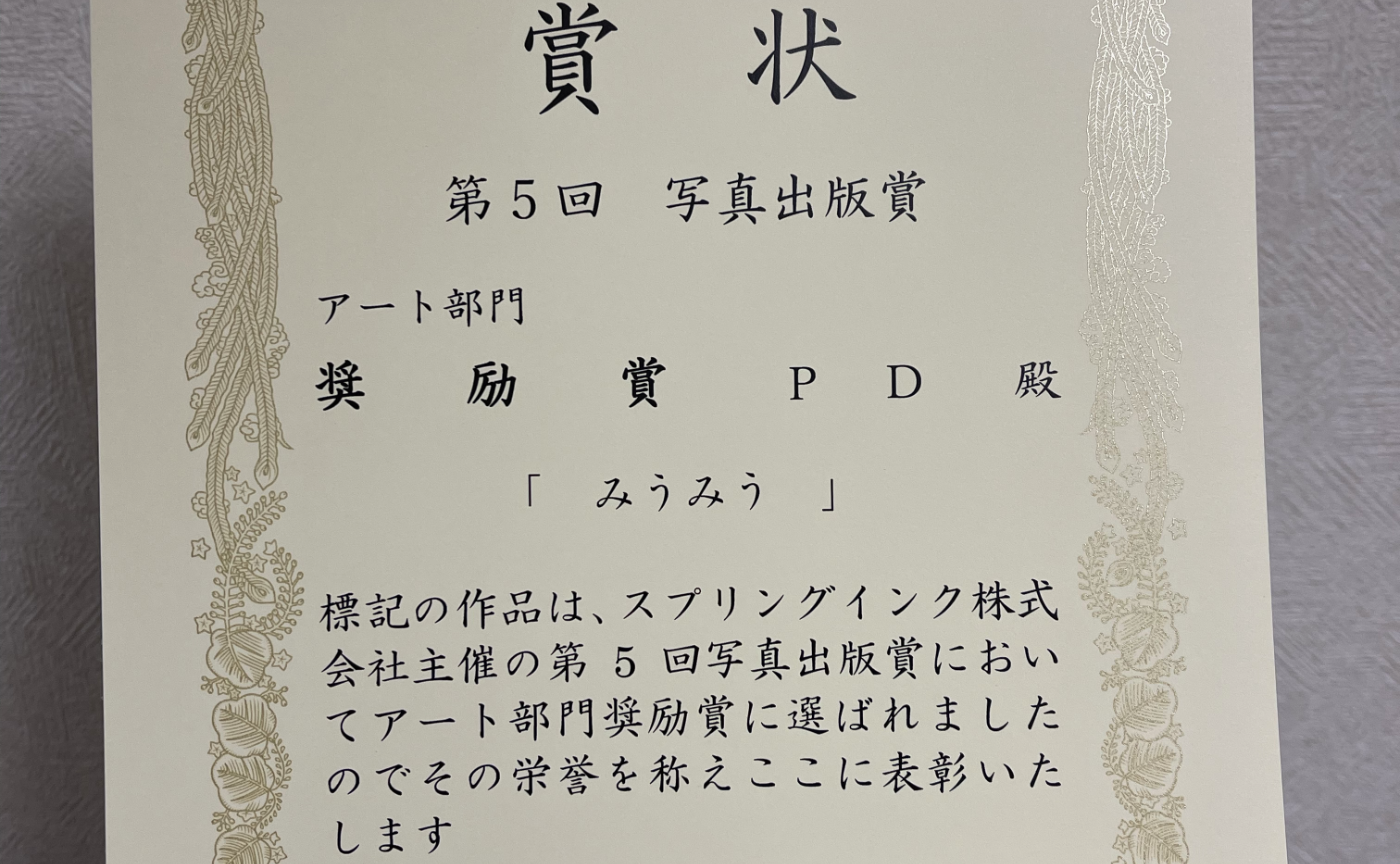 賞状
第5回 写真出版賞
アート部門
奨励賞 PD 殿
「 みうみう 」
標記の作品は、スプリングインク株式
会社主催の第 5 回写真出版賞におい
てアート部門奨励賞に選ばれました
のでその栄誉を称えここに表彰いた
します